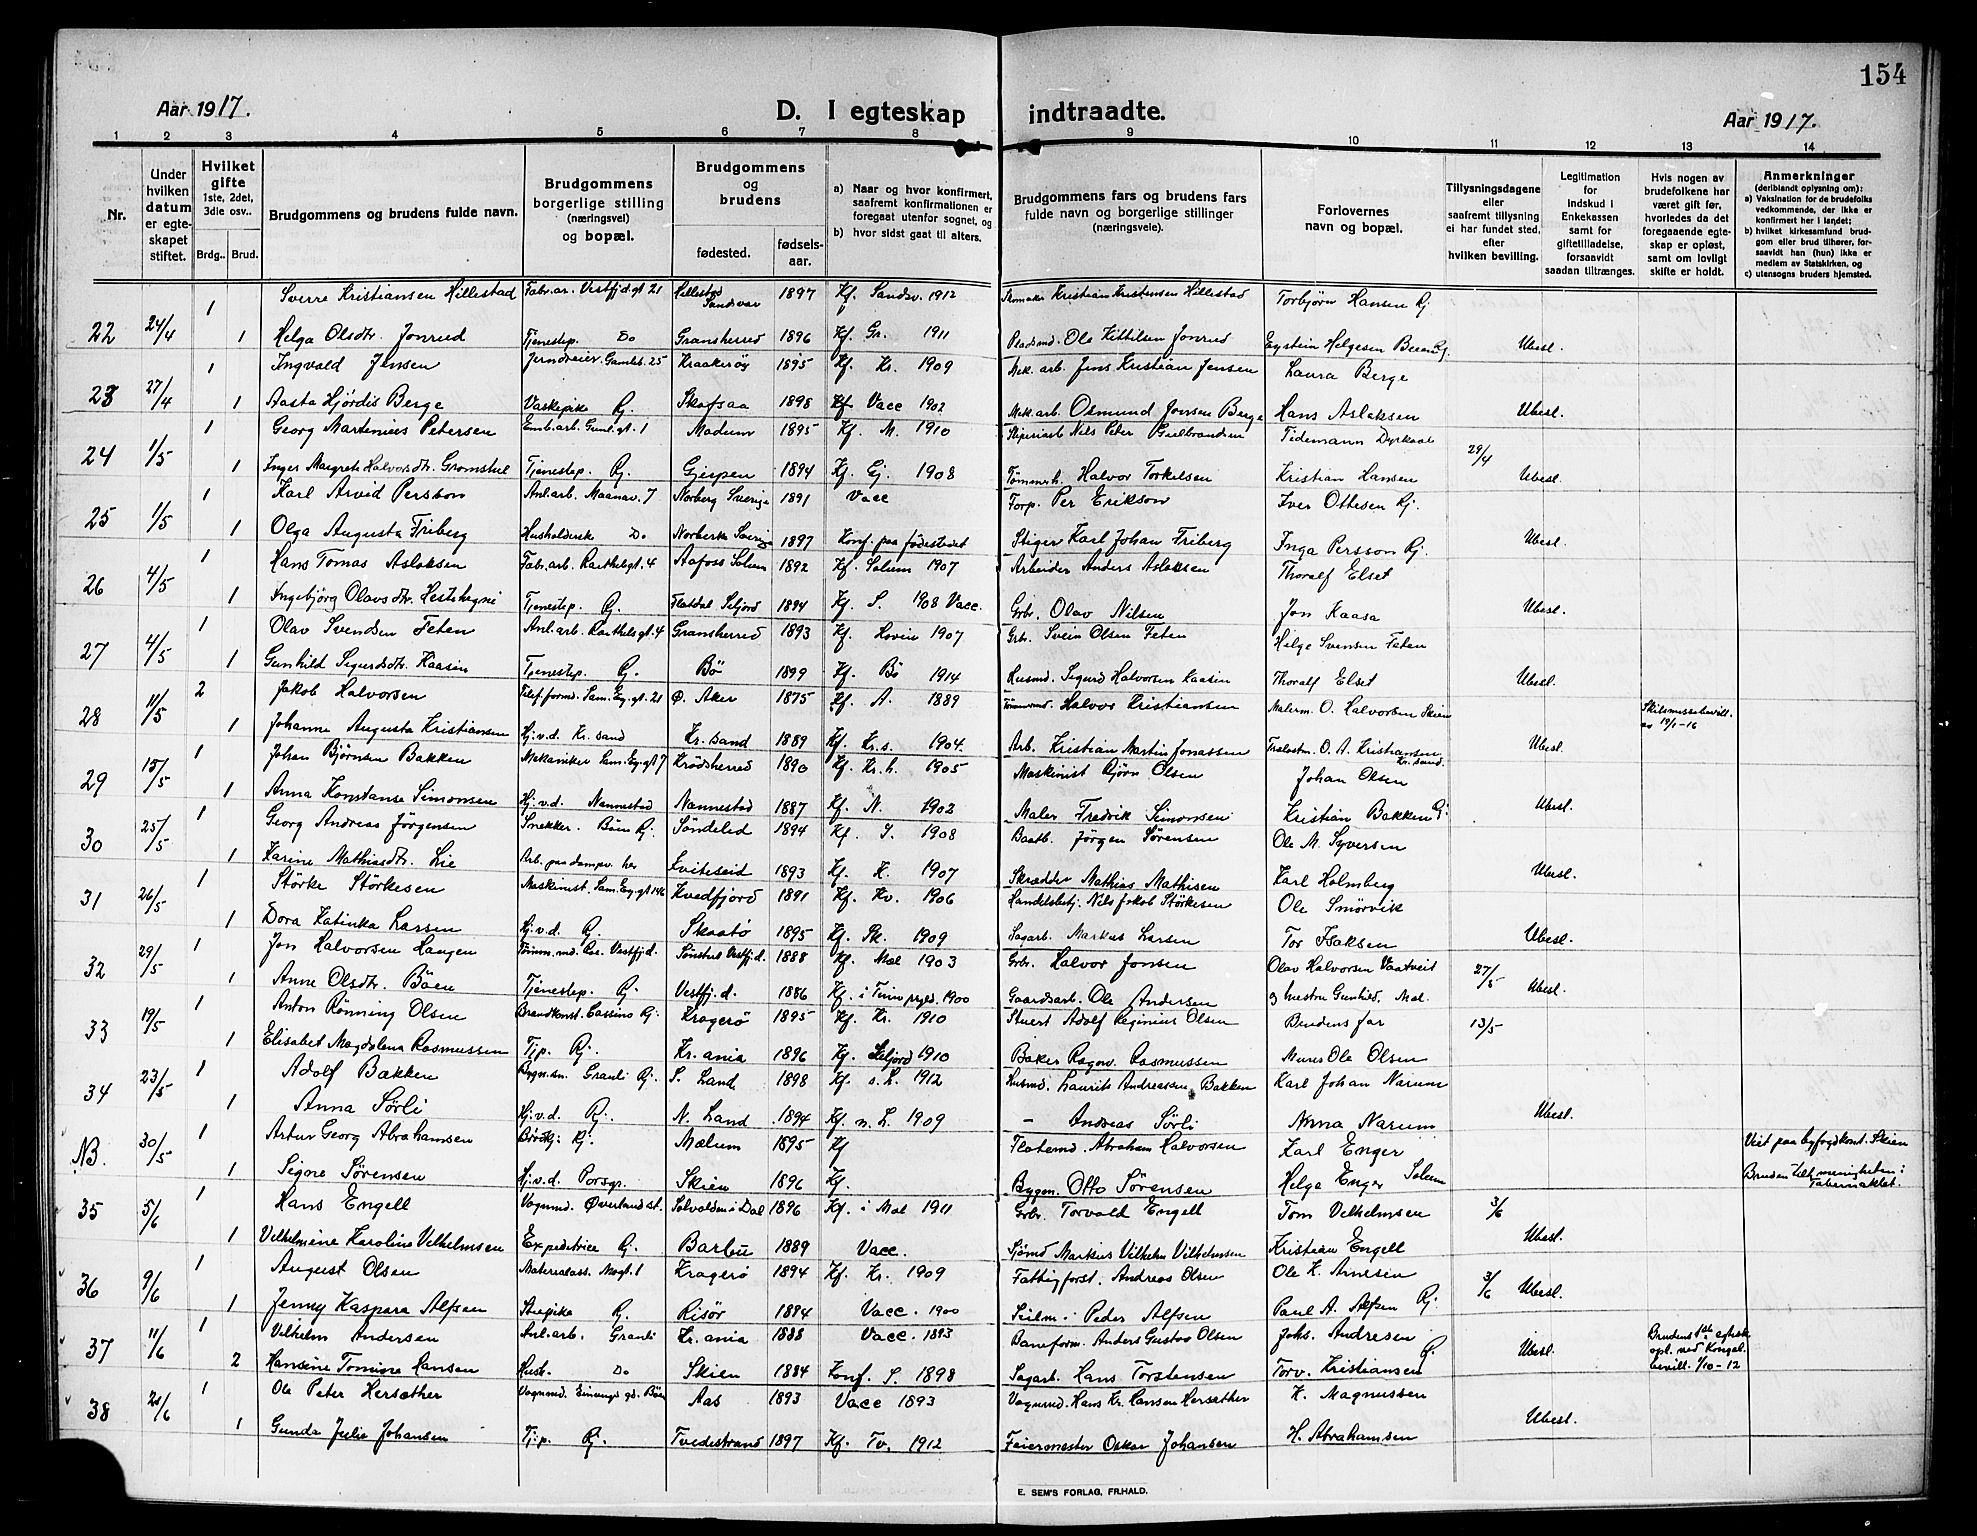 154
Aar 1917.
D. I egteskap indtraadte.
Aar 1917.
1 2 3 4 5 6 7 8 9 10 11 12 13 14
Nr.
Under hvilken datum er egteskapet stiftet.
Hvilket gifte 1ste, 2det, 3die osv..
Brdg.. Brud.
Brudgommens og brudens fulde navn.
Brudgommens borgerlige stilling (næringsvei) og bopæl.
Brudgommens og brudens
fødested. fødselsaar.
a) Naar og hvor konfirmert, saafremt konfirmationen er foregaat utenfor sognet, og
b) hvor sidst gaat til alters.
Brudgommens fars og brudens fars fulde navn og borgerlige stillinger (næringsveie).
Forlovernes navn og bopæl.
Tillysningsdagene eller saafremt tillysning ei har fundet sted, efter hvilken bevilling.
Legitimation for indskud i Enkekassen samt for giftetilladelse, forsaavidt saadan tiltrænges.
Hvis nogen av brudefolkene har været gift før, hvorledes da det foregaaende egteskap er opløst, samt om lovligt skifte er holdt.
Anmerkninger (deriblandt oplysning om): a) Vaksination for de brudefolks vedkommende, der ikke er konfirmert her i landet; b) hvilket kirkesamfund brudgom eller brud tilhører, forsaavidt han (hun) ikke er medlem av Statskirken, og c) utensogns bruders hjemsted.
1 Sverre Kristiansen Hillestad Fabr.ar. Vestfj.d.gt 21 Hillestad Sandsvær 1897 Kf. Sandsv. 1912 Kristian Kristensen Hillestad Torbjørn Hansen Rj
22 24/4 1 Helga Olsdtr. Jonrud Tjenestep. Do Gransherred 1896 Kf. Gr. 1911 Pladsmd. Ole Kittilsen Jonrud Eystein Helgesen Rj. Ubesl.
1 Ingvald Jensen Gamleb. 25 Kraakerøy 1895 Kf. Kr. 1909 Mek. arb. Jens Kristian Jensen Laura Berge
23 27/4 1 Aasta Hjørdis Berge Vaskepike Rj. Skafsaa 1898 Vacc 1902 Mek.arb. Osmund Jonsen Berge Hans Aslaksen Ubesl.
1 Georg Martinius Petersen Emb.arb. Gaml.gt. 1 Modum 1895 Kf. M. 1910 Nils Peter Gulbrandsen Tidemann Dyrkaas
24 1/5 1 Inger Margrete Halvorsdtr. Gromstul Tjenestep. Rj. Gjerpen 1894 Kf. Gj. 1908 Tømmerh. Halvor Torkelsen Kristian Hansen 29/4 Ubesl.
1 Karl Arvid Persson Anl.arb. Maanav. 7 Norberg Sverige 1891 Vacc Forp. Per Erikson Iver Ottesen Rj.
25 1/5 1 Olga Augusta Friberg Husholderske Do Norberke Sverige 1897 Konf. paa fødestedet Stiger Karl Johan Friberg Inga Persson Rj. Ubesl.
1 Hans Tomas Aslaksen Fabr.arb. Rarthelsgt. 4 Aafoss Solum 1892 Kf. Solum 1907 Arbeider Anders Aslaksen Thoralf Elset
26 4/5 1 Ingebjørg Olavsdtr. Hestehagni Tjenestep. Rj. Flatdal Seljord 1894 Kf. S. 1908 Vacc. Grbr. Olav Nilsen Jon Kaasa Ubesl.
1 Olav Svendsen Feten Anl.arb. Rarthelsgt. 4 Gransherred 1893 Kf. Hovin 1907 Grb. Svein Olsen Feten Helge Svensen Feten
27 4/5 1 Gunhild Sigurdsdtr. Kaasin Tjenestep. Rj. Bø 1899 Kf. Bø 1914 Husmd. Sigurd Halvorsen Kaasin Thoralf Elset Ubesl.
2 Jakob Halvorsen Telef.formd. Sam.Ey.gt. 21 Ø. Aker 1875 Kf. A. 1889 Halvor Kristiansen Malerm. O. Halvorsen Skien
28 11/5 1 Johanne Augusta Kristiansen Hj.v.d. Kr.sand Kr.sand 1889 Kf. Kr.s. 1904. Arb. Kristian Martin Jonassen O. A. Kristiansen Kr.sand. Ubesl. Skilsmissebevill. av 19/1-16
1 Johan Bjørnsen Bakken Mekaniker Sam.Ey.gt 7 Krødsherred 1890 Kf. Kr.h. 1905 Maskinist Bjørn Olsen Johan Olsen
29 15/5 1 Anna Konstanse Simonsen Hj.v.d. Nannestad Nannestad 1887 Kf. N. 1902 Maler Fredrik Simonsen Kristian Bakken Rj Ubesl.
1 Georg Andreas Jørgensen Snekker. Bøen Rj. Søndeled 1894 Kf. S. 1908 Baatb. Jørgen Sørensen Ole M. Syversen
30 25/5 1 Karine Mathiasdtr. Lie Arb. paa dampv. her Kviteseid 1893 Kf. K. 1907 Skrædder Mathias Mathisen Karl Holmberg Ubesl.
1 Størke Størkesen Maskinist. Sam.Ey.gt 146 Kvedfjord 1891 Kf. Kv. 1906 Landelsbetj. Nils Jakob Størkesen Ole Smørvik
31 26/5 1 Dora Katinka Larsen Hj.v.d. Rj. Skaatø 1895 Kf. Sk. 1909 Sagarb. Markus Larsen Tor Isaksen Ubesl.
1 Jon Halvorsen Haugen Tømm.md. Vestfj.d. Vestfj.d. 1888 Kf. Mæl 1903 Grb. Halvor Jonsen Olav Halvorsen Vaatveit
32 29/5 1 Anne Olsdtr. Bøen Tjenestep. Rj. Vestfj.d. 1886 Kf. i Tinn 1900 Gaardsarb. Ole Andersen og hustru Gunhild. Mæl. 27/5 Ubesl.
1 Anton Rønning Olsen Brandkonst. Cassino Rj. Kragerø 1895 Kf. Kr. 1910 Stuert Adolf Reginius Olsen Brudens far
33 19/5 1 Elisabet Magdalena Rasmussen Tjp. Rj. Kr.ania 1896 Kf. Seljord 1910 Baker Ragnv. Rasmussen Murer Ole Olsen 13/5
1 Adolf Bakken Granli Rj. S. Land 1898 Kf. s.L. 1912 Husmd. Laurits Andreassen Bakken Karl Johan Narum
34 23/5 1 Anna Sørli Hj.v.d. Rj. N. Land 1894 Kf. n.L. 1909 - Andreas Sørli Anna Narum Ubesl.
1 Artur Georg Abrahamsen Rj. Mælum 1895 Kf Flotemd. Abraham Halvorsen Karl Enger Viet paa byfogdkont. Skien
NB. 30/5 1 Signe Sørensen Hj.v.d. Porsgr. Skien 1896 Kf. Bygm. Otto Sørensen Helga Enger Solum Bruden tilh. menigheten i Tabernaklet.
1 Hans Engell Vognmd. Øverland st. Solvolden i Dal 1896 Kf. i Mæl 1911 Grbr. Torvald Engell Tom Vilhelmsen
35 5/6 1 Vilhelmine Karoline Vilhelmsen Expeditrice Rj. Barbu 1889 Vacc. Sjømd Markus Vilhelm Vilhelmsen Kristian Engell 3/6 Ubesl.
1 August Olsen Materialass. 1 Kragerø 1894 Kf. Kr. 1909 Fattigforst. Andreas Olsen Ole K. Arnesen
36 9/6 1 Jenny Kaspara Alfsen Stuepike Rj. Risør 1894 Vacc. 1900 Seilm. Peder Alfsen Paul A. Alfsen Rj. 3/6 Ubesl.
1 Vilhelm Andersen Anl.arb. Granli Kr.ania 1888 Vacc. 1893 Baneform. Anders Gustav Olsen Johs. Andresen
37 11/6 2 Hansine Tomine Hansen Hush. Do Skien 1884 Konf. S. 1898 Sagarb. Hans Torstensen Torv. Kristiansen Rj. Ubesl. Brudens 1ste egtesk opl. ved Kongel. bevill. 1/10-12
1 Ole Peter Hersæther Vognmd. Bøen Aas 1893 Vacc 1893 Vognmd. Hans Kr. Hansen Hersæther K. Magnussen
38 21/6 1 Gunda Julie Johansen Tj.p. Rj. Tvedestrand 1897 Kf. Tv. 1912 Feiermester Oskar Johansen H. Abrahamsen Ubesl.
E. SEM'S FORLAG, FR.HALD.